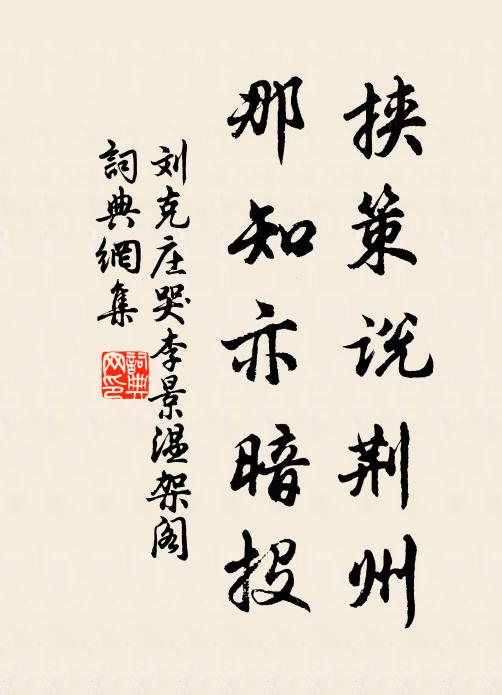 挟策说荆州
那知亦暗投
刘克庄哭李景温架阁
詞典網集
詞典網印